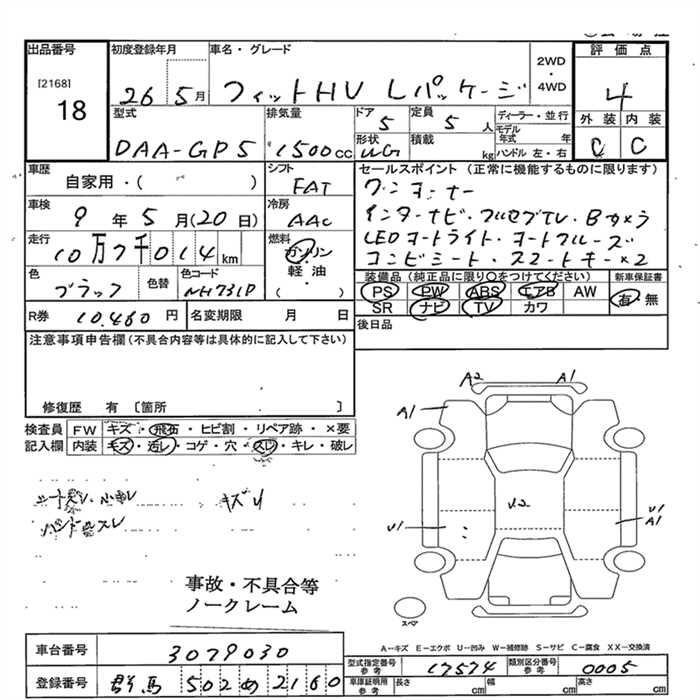 出品番号
[2168]
18
初度登録年月
26 5月
車名・グレード
フィットHV Lパッケージ
2WD
・
4WD
評価点
4
外装 内装
C C
型式
DAA-GP5
排気量
1500cc
ドア
5
定員
5人
形状
WG
積載
kg
ディーラー・並行
モデル年式 年
ハンドル 左・右
車歴
自家用・( )
シフト
FAT
セールスポイント (正常に機能するものに限ります)
ワンオーナー
インターナビ・フルセグTV・Bカメラ
LEDオートライト・オートクルーズ
コンビシート・スマートキー×2
車検
9年5月(20日)
冷房
AAC
走行
10万7千014km
燃料
ガソリン
・
軽・油
( )
色
ブラック
色替
色コード
NH731P
装備品 (純正品に限り○をつけてください)
新車保証書
PS PW ABS エアB AW
有・無
SR ナビ TV カワ
R券 10,460円
名変期限 月 日
後日品
注意事項申告欄 (不具合内容等は具体的に記入して下さい)
修復歴 有 〔箇所 〕
検査員 FW キズ・飛石・ヒビ割・リペア跡・×要
記入欄 内装 キズ・汚レ・コゲ・穴・スレ・キレ・破レ
キズU
ハンドルスレ
A2 A1
A1
U2
U1
U1
A1
事故・不具合等
ノークレーム
スペア
A―キズ E―エクボ U―凹み W―補修跡 S―サビ C―腐食 XX―交換済
車台番号 3079030
型式指定番号 参考 17574
類別区分番号 参考 0005
登録番号 群馬 502 め 2160
車庫証明用 参考 長さ cm 幅 cm 高さ cm